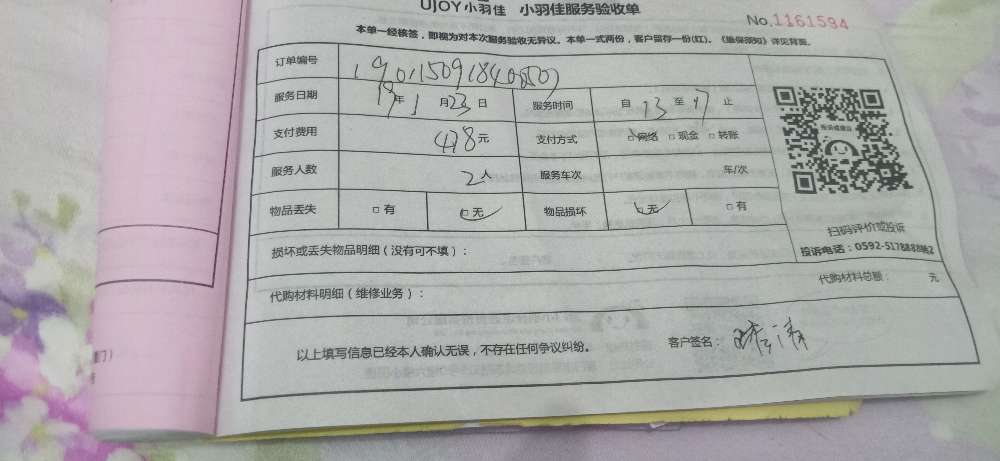 UJOY小羽佳 小羽佳服务验收单
No.1161594
本单一经核签，即视为对本次服务验收无异议。本单一式两份，客户留存一份(红)。《维保须知》详见背面。
订单编号
服务日期 19年1月23日 服务时间 自13至17止
支付费用 478元 支付方式 □网络 □现金 □转账
服务人数 2人 服务车次 车/次
物品丢失 □有 □无 物品损坏 □无 □有
扫码评价或投诉
投诉电话：0592-5178888转2
损坏或丢失物品明细（没有可不填）：
代购材料明细（维修业务）： 代购材料总额： 元
以上填写信息已经本人确认无误，不存在任何争议纠纷。 客户签名：